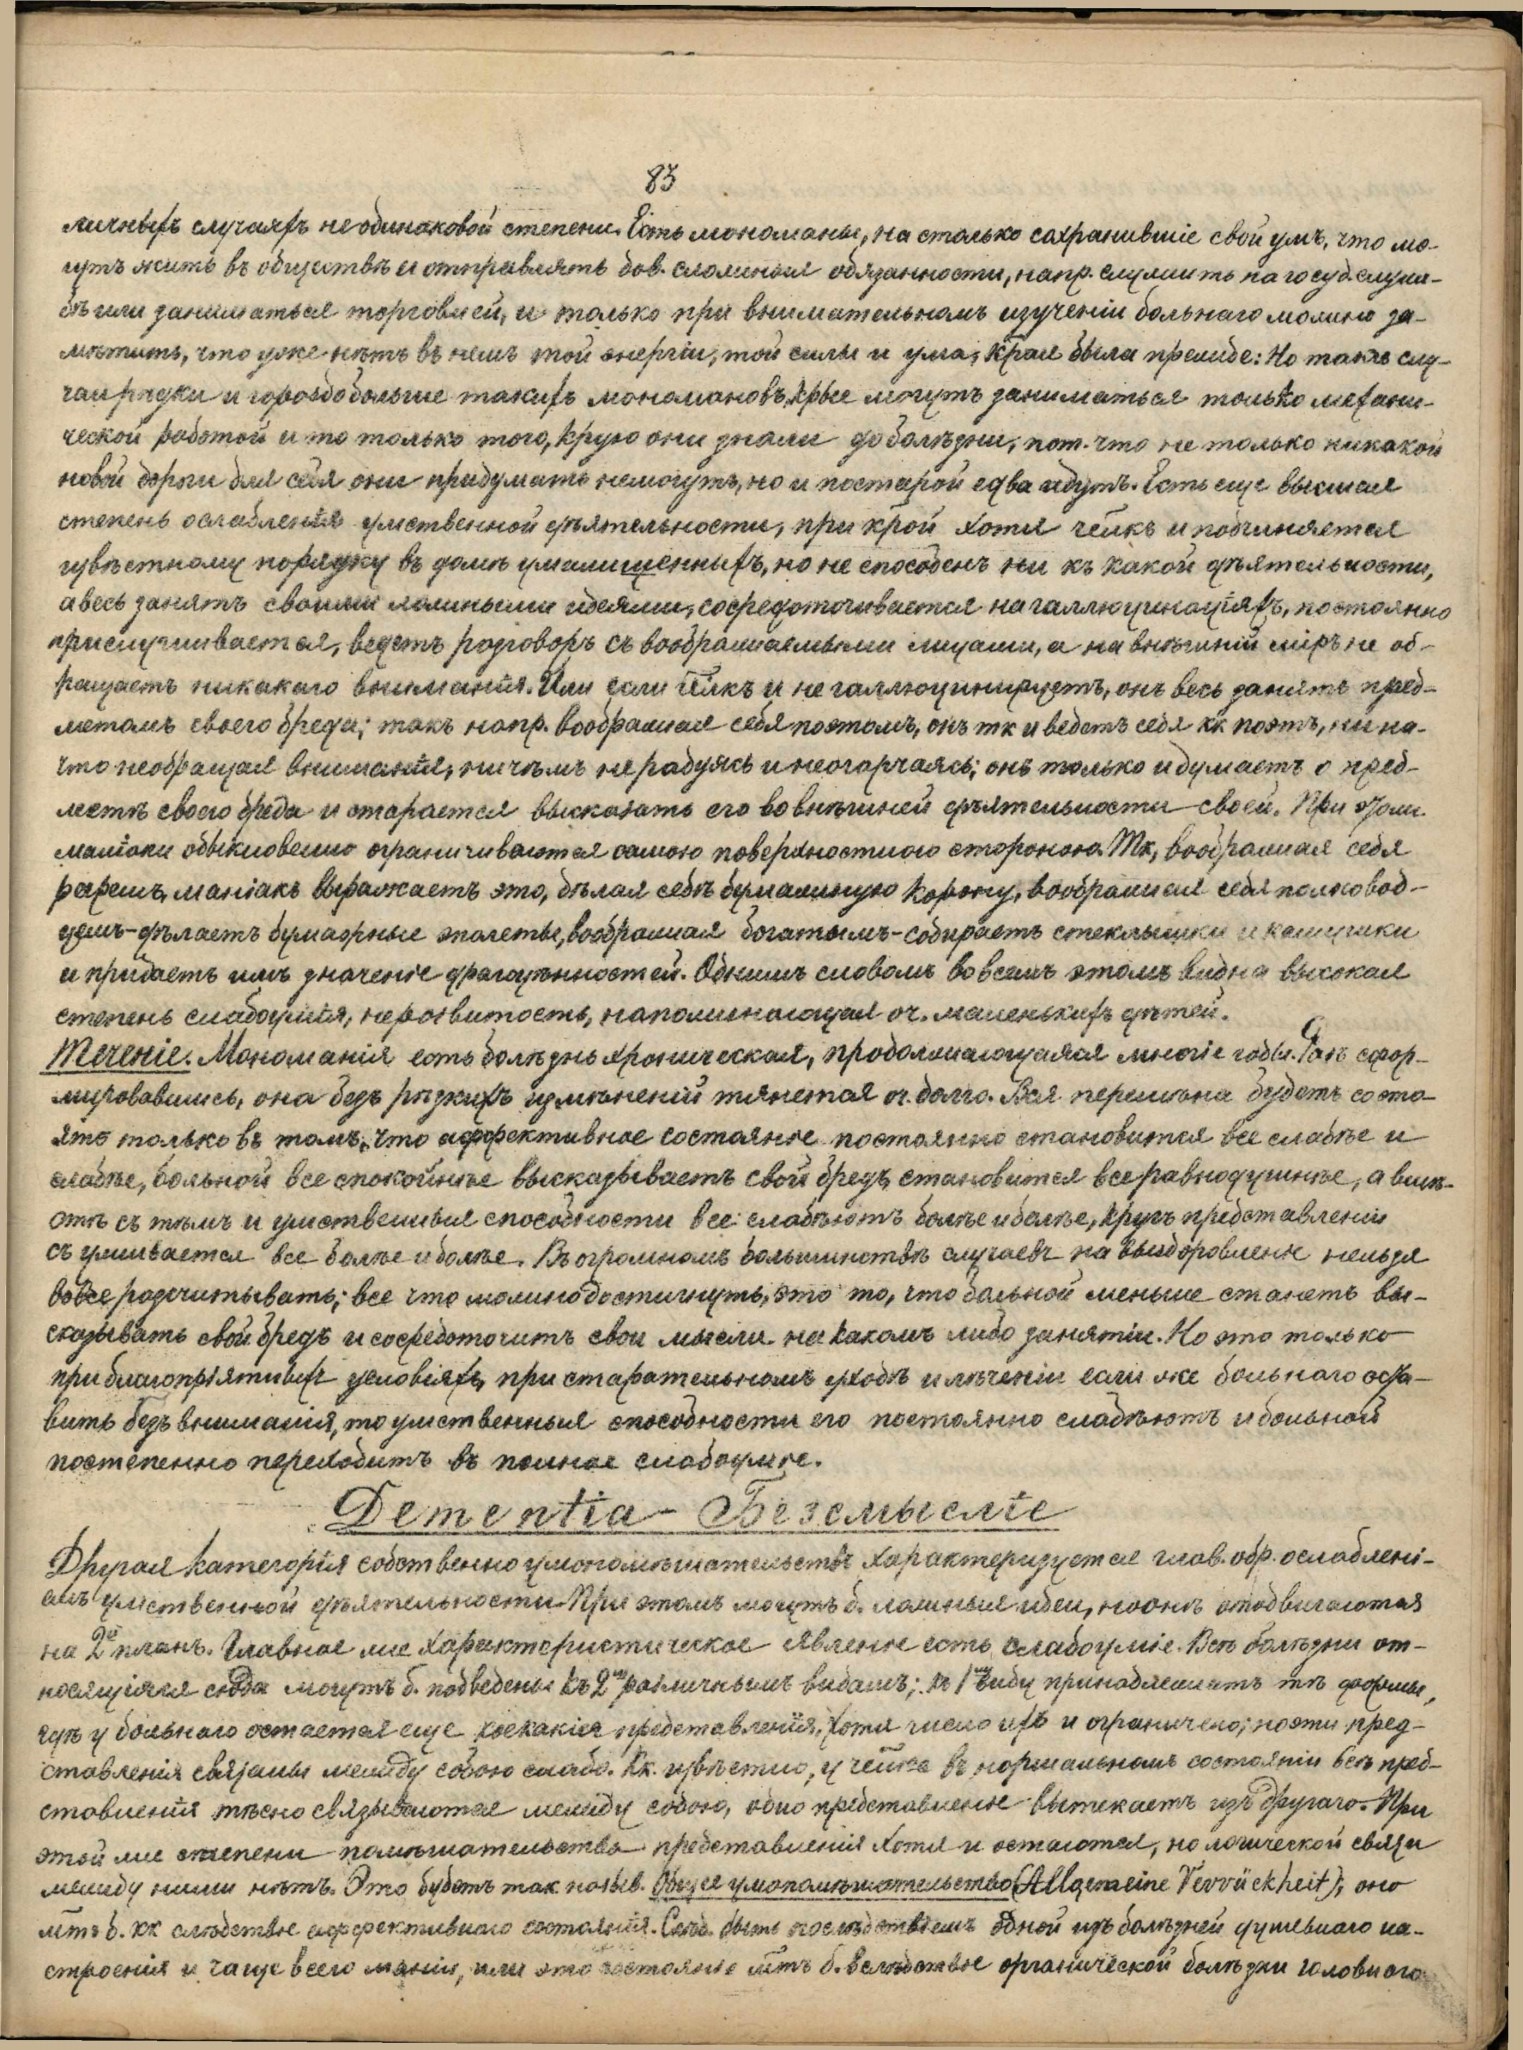 83
личныхъ случаяхъ не одинаковой степени. Есть мономаны, на столько сохранившіе свой умъ, что мо-
гутъ жить въ обществѣ и отправлять дов. сложныя обязанности, напр. служить на госуд. служ-
бѣ или заниматься торговлей, и только при внимательномъ изученіи больнаго можно за-
мѣтить, что уже нѣтъ въ немъ той энергіи, той силы и ума, края была прежде: Но такіе слу-
чаи рѣдки и гораздо больше такихъ мономановъ, крые могутъ заниматься только механи-
ческой работой и то только того, крую они знали до болѣзни, пот. что не только никакой
новой дороги для себя они придумать немогутъ, но и по старой едва идутъ. Есть еще высшая
степень ослабленія умственной дѣятельности, при крой хотя челкъ и подчиняется
извѣстному порядку въ домѣ умалишенныхъ, но не способенъ ни къ какой дѣятельности,
а весь занятъ своими ложными идеями, сосредоточивается на галлюцинаціяхъ, постоянно
прислушивается, ведетъ разговоръ съ воображаемыми лицами, а на внѣшній міръ не об-
ращаетъ никакаго вниманія. Или если челкъ и не галлюцинируетъ, онъ весь занятъ пред-
метомъ своего бреда; такъ напр. воображая себя поэтомъ, онъ тк и ведетъ себя кк поэтъ, ни на
что необращая вниманія, ничѣмъ не радуясь и неогорчаясь; онъ только и думаетъ о пред-
метѣ своего бреда и старается высказать его во внѣшней дѣятельности своей. При этомъ
маніаки обыкновенно ограничиваются самою поверхностною стороною. Тк, воображая себя
царемъ, маніакъ выражаетъ это, дѣлая себѣ бумажную корону, воображая себя полковод-
цемъ - дѣлаетъ бумажные эполеты, воображая богатымъ - собираетъ стеклышки и камушки
и придаетъ имъ значеніе драгоцѣнностей. Однимъ словомъ во всемъ этомъ видна высокая
степень слабоумія, неразвитость, напоминающая оч. маленькихъ дѣтей.
Теченіе. Мономанія есть болѣзнь хроническая, продолжающаяся многіе годы. Разъ сфор-
мировавшись, она безъ рѣзкихъ измѣненій тянется оч. долго. Вся перемѣна будетъ состо-
ять только въ томъ, что аффективное состояніе постоянно становится все слабѣе и
слабѣе, больной все спокойнѣе высказываетъ свой бредъ, становится все равнодушнѣе, а вмѣ-
стѣ съ тѣмъ и умственныя способности все слабѣютъ болѣе и болѣе, кругъ представленій
съуживается все болѣе и болѣе. Въ огромномъ большинствѣ случаевъ на выздоровленіе нельзя
вовсе разсчитывать; все что можно достигнуть, это то, что больной меньше станетъ вы-
сказывать свой бредъ и сосредоточитъ свои мысли на какомъ либо занятіи. Но это только
при благопріятныхъ условіяхъ, при старательномъ уходѣ и лѣченіи если же больнаго оста-
вить безъ вниманія, то умственныя способности его постоянно слабѣютъ и больной
постепенно переходитъ въ полное слабоуміе.
Dementia - Безсмысліе
Другая категорія собственно умопомѣшательствъ характеризуется глав. обр. ослаблені-
емъ умственной дѣятельности. При этомъ могутъ б. ложныя идеи, но онѣ отодвигаются
на 2й планъ. Главное же характеристическое явленіе есть слабоуміе. Всѣ болѣзни от-
носящіяся сюда могутъ б. подведены къ 2мъ различнымъ видамъ; къ 1му виду принадлежатъ тѣ формы,
гдѣ у больнаго остается еще коекакія представленія, хотя число ихъ и ограничено; но эти пред-
ставленія связаны между собою слабо. Кк. извѣстно, у челка въ нормальномъ состояніи всѣ пред-
ставленія тѣсно связываются между собою, одно представленіе вытекаетъ изъ другаго. При
этой же степени помѣшательства представленія хотя и остаются, но логической связи
между ними нѣтъ. Это будетъ так назыв. Общее умопомѣшательство (Allgemeine Verrückheit), оно
мтъ б. кк слѣдствіе аффективнаго состоянія. След. быть послѣдствіемъ одной изъ болѣзней душевнаго на-
строенія и чаще всего маніи, или это состояніе мтъ б. вслѣдствіе органической болѣзни головнаго